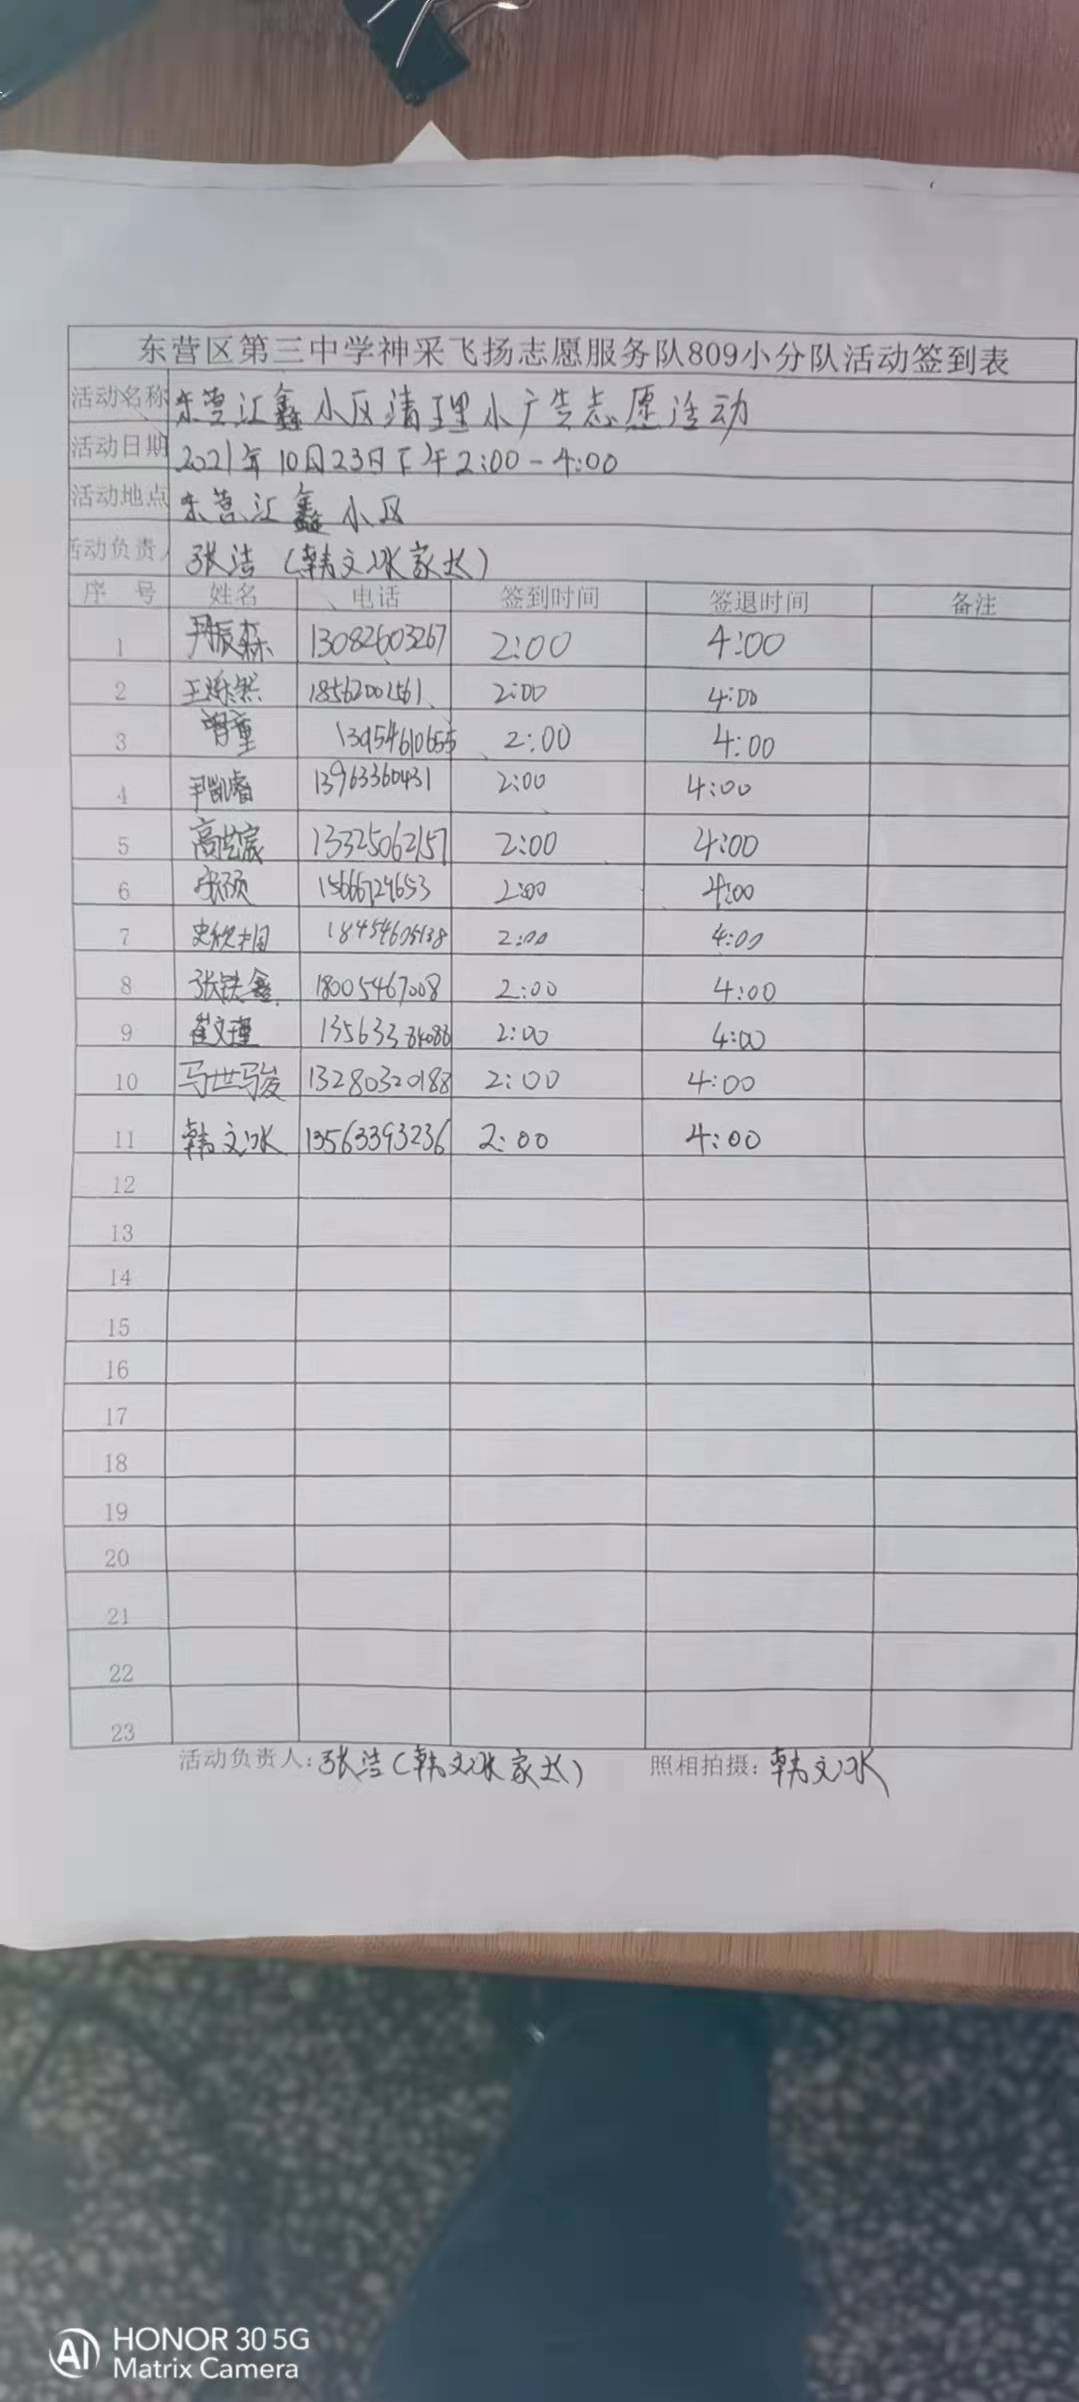 东营区第三中学神采飞扬志愿服务队809小分队活动签到表
活动名称 东营汇鑫小区清理小广告志愿活动
活动日期 2021年10月23日下午2:00-4:00
活动地点 东营汇鑫小区
活动负责人 张洁(韩文冰家长)
序 号 姓名 电话 签到时间 签退时间 备注
1 尹辰森 13082603267 2:00 4:00
2 王烁然 18562001561 2:00 4:00
3 13954610655 2:00 4:00
4 尹凯睿 13963360431 2:00 4:00
5 高艺宸 13325062157 2:00 4:00
6 张硕 15666724653 2:00 4:00
7 2:00 4:00
8 张轶鑫 18005467008 2:00 4:00
9 崔文瑾 2:00 4:00
10 马世骏 13280320188 2:00 4:00
11 韩文冰 13563393236 2:00 4:00
12
13
14
15
16
17
18
19
20
21
22
23
活动负责人:张洁(韩文冰家长) 照相拍摄:韩文冰
AI HONOR 30 5G
Matrix Camera